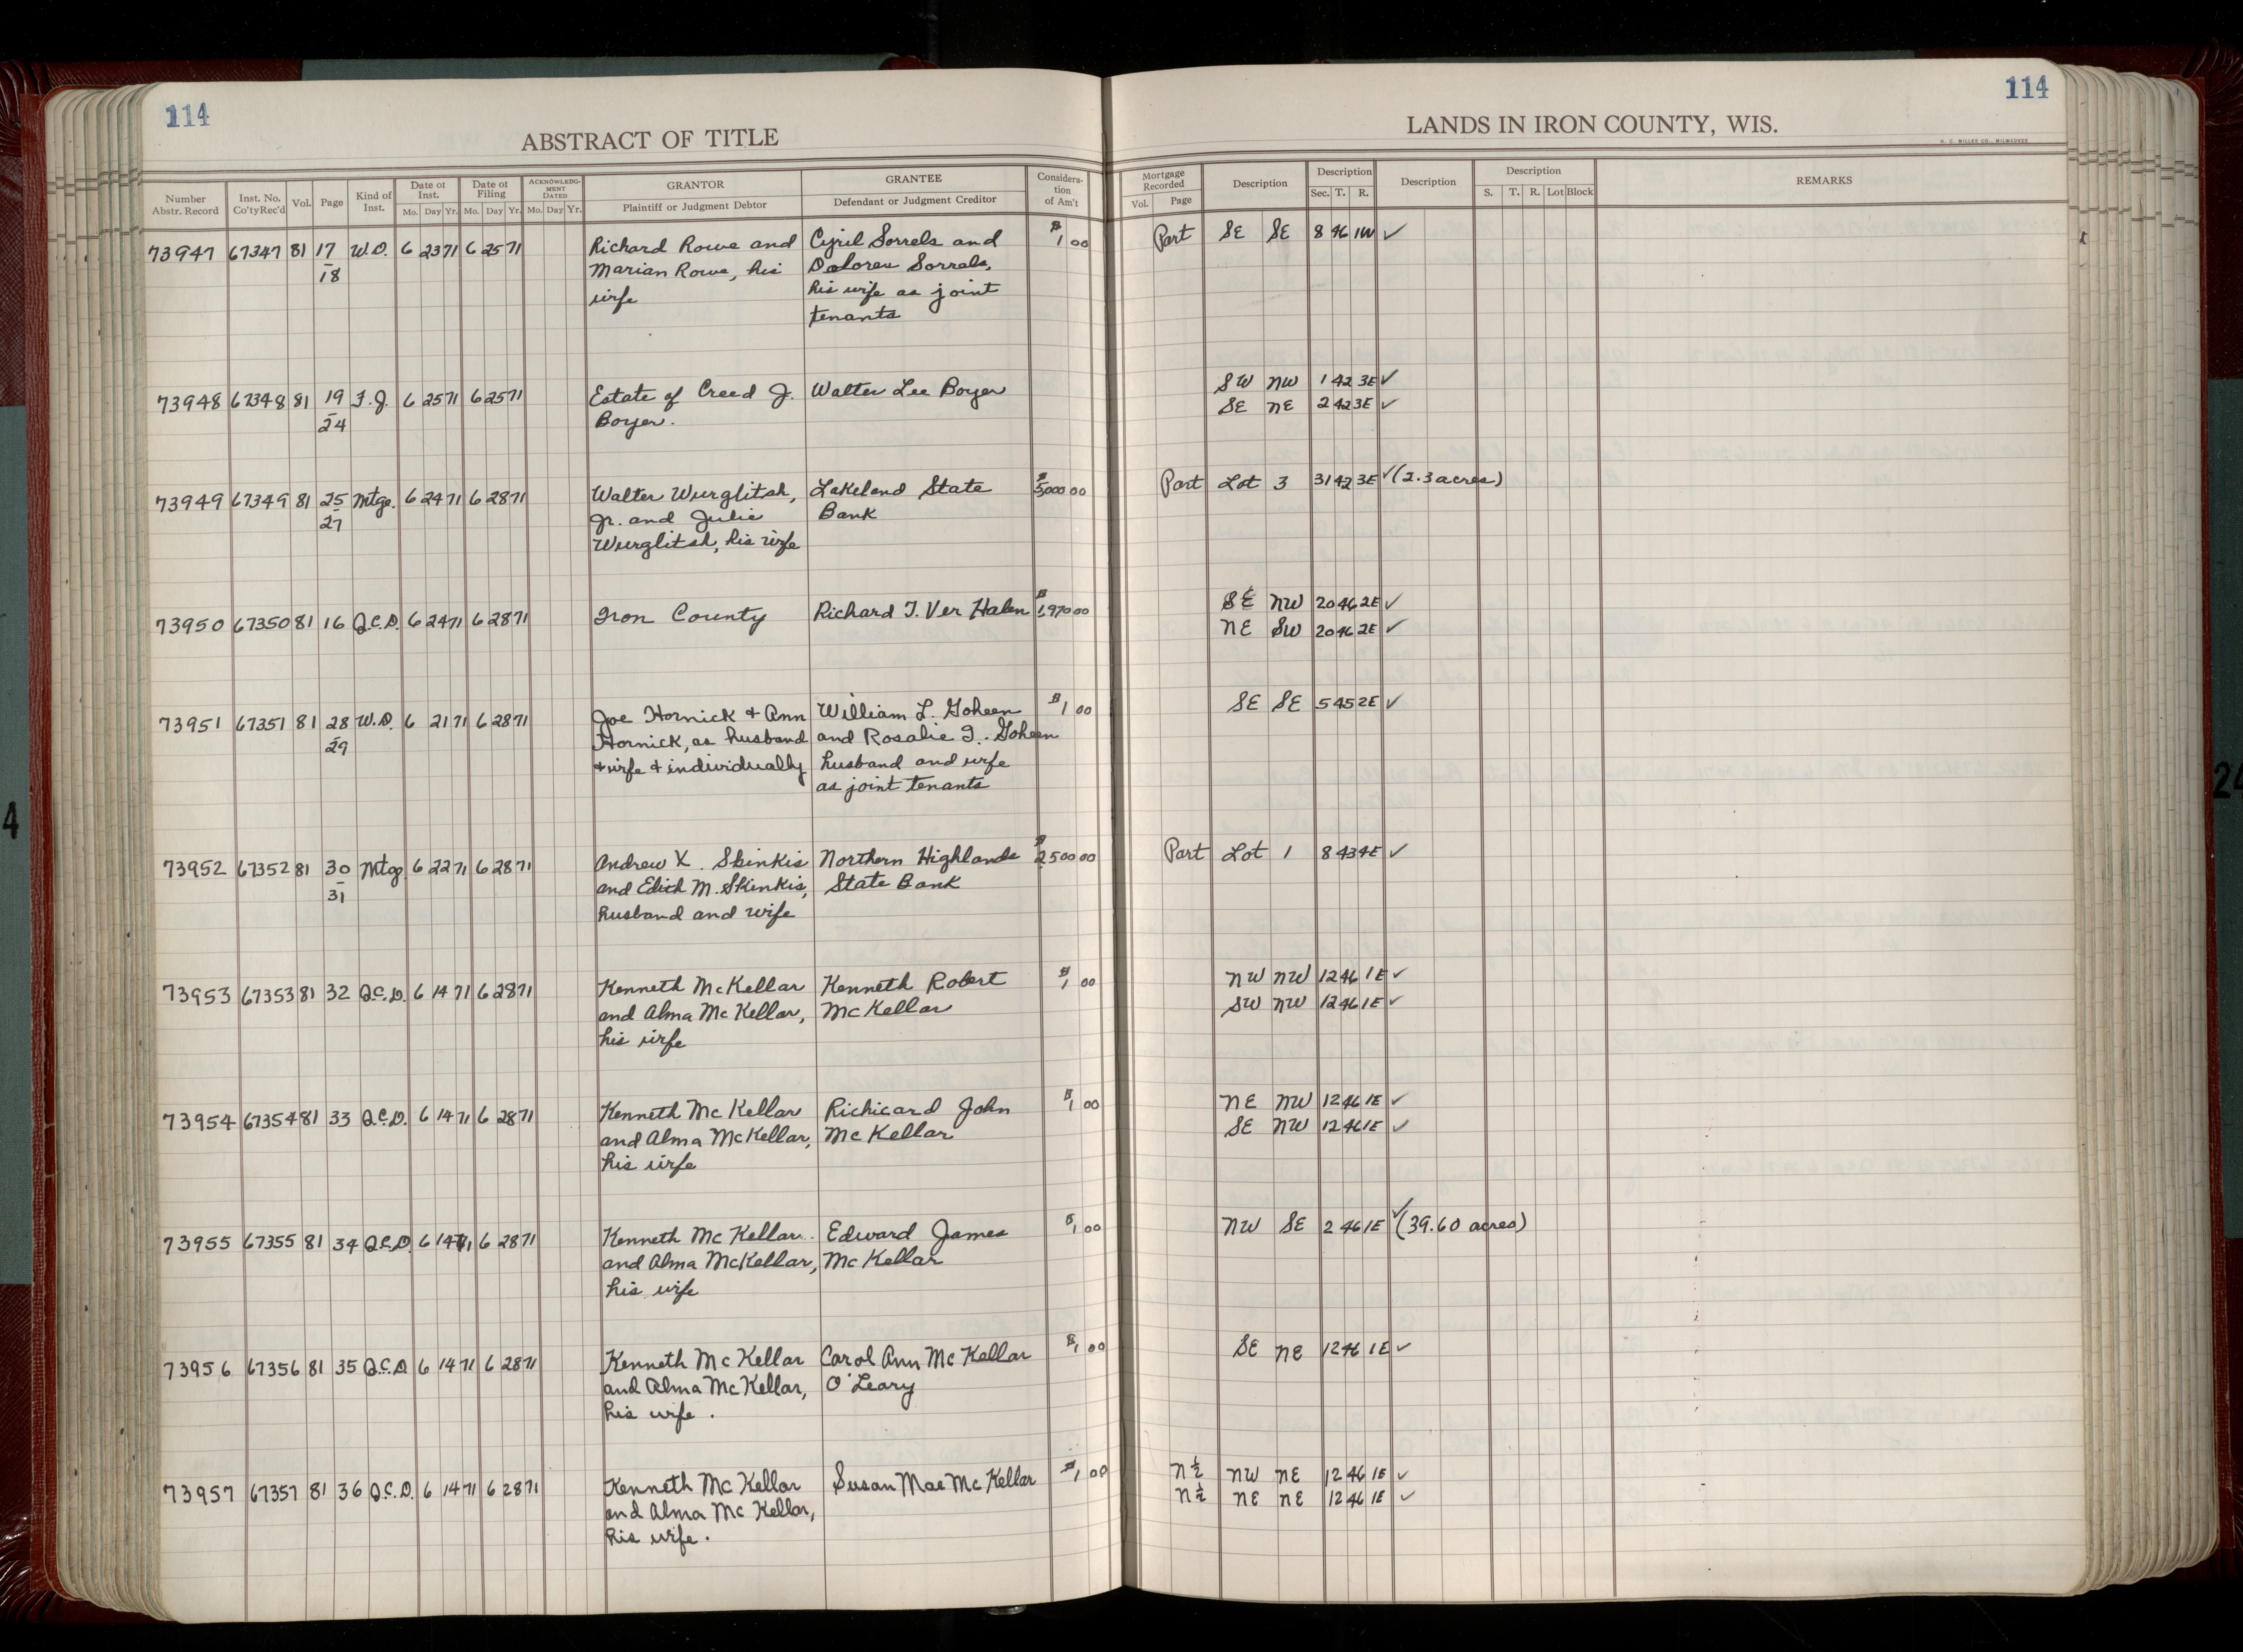 114
114
ABSTRACT OF TITLE
LANDS IN IRON COUNTY, WIS.
H. C. MILLER CO., MILWAUKEE
Number Abstr. Record
Inst. No. Co'ty Rec'd
Vol.
Page
Kind of Inst.
Date of Inst.
Mo. Day Yr.
Date of Filing
Mo. Day Yr.
ACKNOWLEDGMENT DATED
Mo. Day Yr.
GRANTOR
Plaintiff or Judgment Debtor
GRANTEE
Defendant or Judgment Creditor
Consideration of Am't
Mortgage Recorded
Vol. Page
Description
Description
Sec. T. R.
Description
Description
S. T. R. Lot Block
REMARKS
73947 67347 81 17 W.D. 6 23 71 6 25 71 Richard Rowe and Cyril Sorrels and $1 00 Part SE SE 8 46 1W ✓
18 Marian Rowe, his Dolores Sorrels,
wife his wife as joint
tenants
73948 67348 81 19 F.J. 6 25 71 6 25 71 Estate of Creed J. Walter Lee Boyer SW NW 1 42 3E ✓
24 Boyer. SE NE 2 42 3E ✓
73949 67349 81 25 Mtge. 6 24 71 6 28 71 Walter Wurglitsh, Lakeland State $5,000 00 Part Lot 3 31 42 3E ✓ (2.3 acres)
27 Jr. and Julie Bank
Wurglitsh, his wife
73950 67350 81 16 Q.C.D. 6 24 71 6 28 71 Iron County Richard T. Ver Halen $1,970 00 SE NW 20 46 2E ✓
NE SW 20 46 2E ✓
73951 67351 81 28 W.D. 6 21 71 6 28 71 Joe Hornick + Ann William L. Goheen $1 00 SE SE 5 45 2E ✓
29 Hornick, as husband and Rosalie I. Goheen
+ wife + individually husband and wife
as joint tenants
73952 67352 81 30 Mtge. 6 22 71 6 28 71 Andrew X. Skinkis Northern Highlands $2,500 00 Part Lot 1 8 43 4E ✓
31 and Edith M. Skinkis, State Bank
husband and wife
73953 67353 81 32 Q.C.D. 6 14 71 6 28 71 Kenneth McKellar Kenneth Robert $1 00 NW NW 12 46 1E ✓
and Alma McKellar, McKellar SW NW 12 46 1E ✓
his wife
73954 67354 81 33 Q.C.D. 6 14 71 6 28 71 Kenneth McKellar Richicard John $1 00 NE NW 12 46 1E ✓
and Alma McKellar, McKellar SE NW 12 46 1E ✓
his wife
73955 67355 81 34 Q.C.D. 6 14 71 6 28 71 Kenneth McKellar Edward James $1 00 NW SE 2 46 1E ✓ (39.60 acres)
and Alma McKellar, McKellar
his wife
73956 67356 81 35 Q.C.D. 6 14 71 6 28 71 Kenneth McKellar Carol Ann McKellar $1 00 SE NE 12 46 1E ✓
and Alma McKellar, O'Leary
his wife.
73957 67357 81 36 Q.C.D. 6 14 71 6 28 71 Kenneth McKellar Susan Mae McKellar $1 00 N½ NW NE 12 46 1E ✓
and Alma McKellar, N½ NE NE 12 46 1E ✓
his wife.
4
24